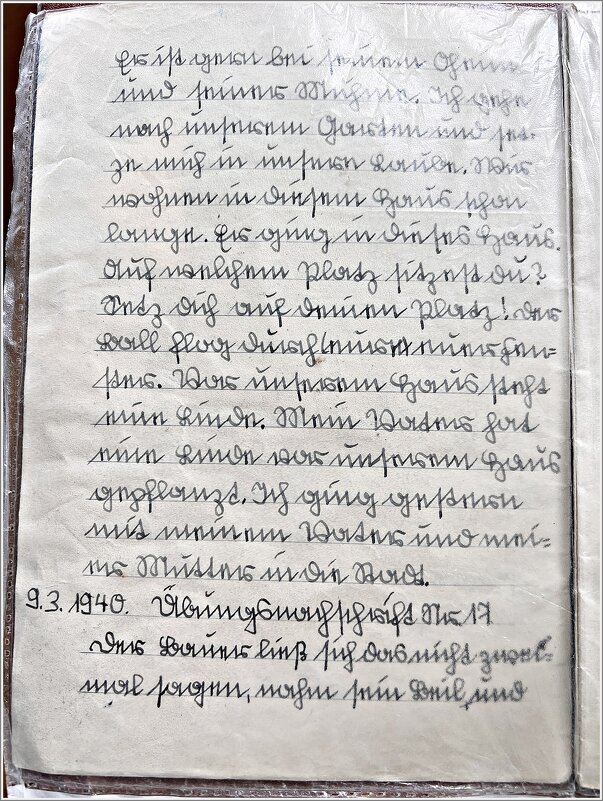 Er ist gern bei seinem Oheim
und seiner Muhme. Ich gehe
nach unserem Garten und set-
ze mich in unsere Laube. Wir
wohnen in diesem Haus schon
lange. Er ging in dieses Haus.
Auf welchem Platz sitzest du?
Setz dich auf deinen Platz! Der
Ball flog durch (eure) euer Fen=
ster. Vor unserem Haus steht
eine Linde. Mein Vater hat
eine Linde vor unserem Haus
gepflanzt. Ich ging gestern
mit meinem Vater und mei=
er Mutter in die Stadt.
9.3.1940. Übungsnachschrift Nr 17
Der Bauer ließ sich das nicht zwei=
mal sagen, nahm sein Beil, und